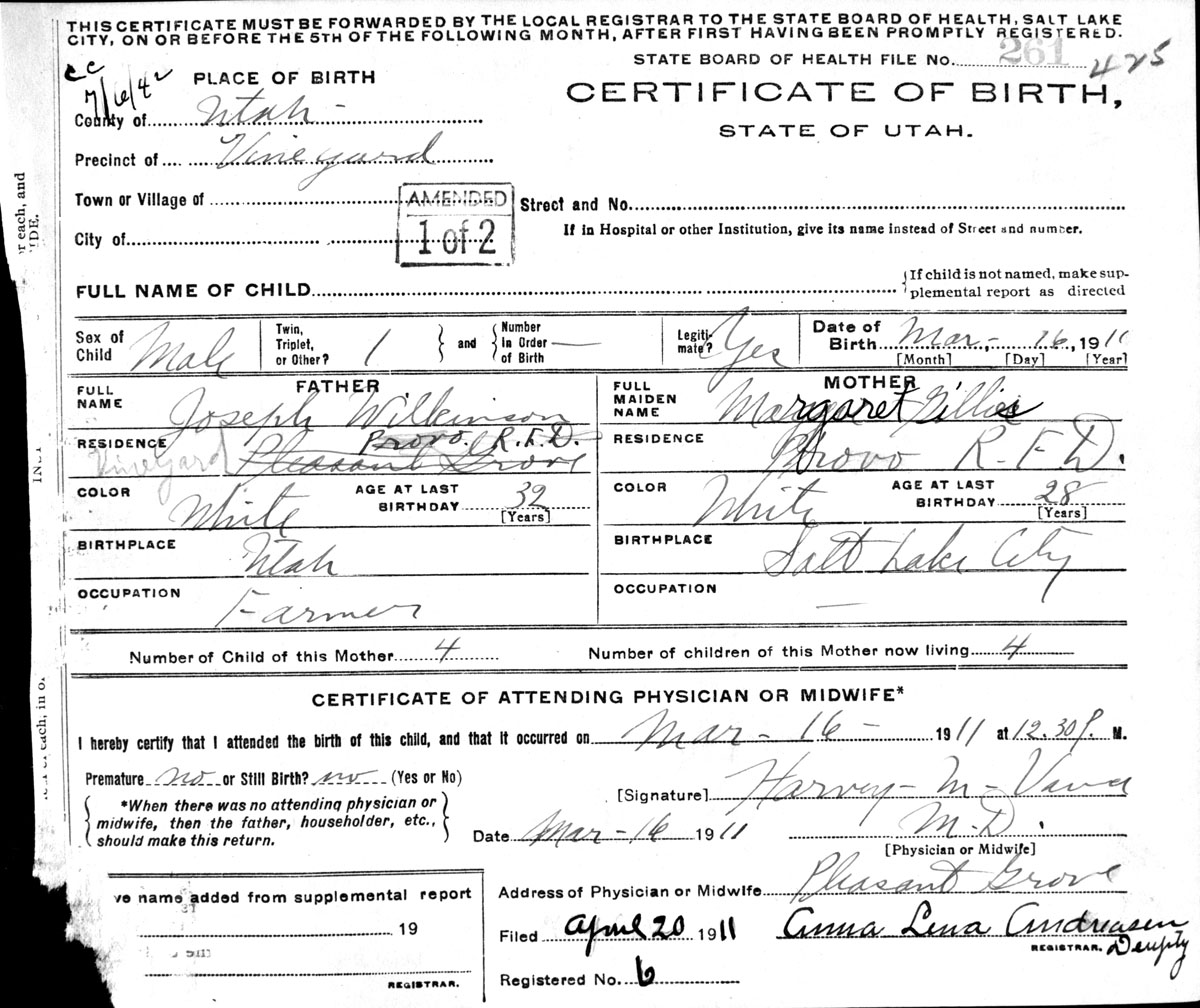 THIS CERTIFICATE MUST BE FORWARDED BY THE LOCAL REGISTRAR TO THE STATE BOARD OF HEALTH, SALT LAKE
CITY, ON OR BEFORE THE 5TH OF THE FOLLOWING MONTH, AFTER FIRST HAVING BEEN PROMPTLY REGISTERED.
STATE BOARD OF HEALTH FILE No. 261 425
cc
7/6/42
PLACE OF BIRTH
CERTIFICATE OF BIRTH,
STATE OF UTAH.
County of Utah
Precinct of Vineyard
Town or Village of
AMENDED
1 of 2
Street and No.
City of
If in Hospital or other Institution, give its name instead of Street and number.
FULL NAME OF CHILD
If child is not named, make sup-
plemental report as directed
Sex of Child Male
Twin, Triplet, or Other? 1
and
Number in Order of Birth —
Legiti-mate? Yes
Date of Birth Mar - 16, 1911
[Month] [Day] [Year]
FATHER
FULL NAME Joseph Wilkinson
RESIDENCE Provo. R.F.D.
Vineyard Pleasant Grove
COLOR White
AGE AT LAST BIRTHDAY 32
[Years]
BIRTHPLACE Utah
OCCUPATION Farmer
MOTHER
FULL MAIDEN NAME Margaret Gillies
RESIDENCE Provo R.F.D.
COLOR White
AGE AT LAST BIRTHDAY 28
[Years]
BIRTHPLACE Salt Lake City
OCCUPATION —
Number of Child of this Mother 4
Number of children of this Mother now living 4
CERTIFICATE OF ATTENDING PHYSICIAN OR MIDWIFE*
I hereby certify that I attended the birth of this child, and that it occurred on Mar - 16 - 1911 at 12.30 P. M.
Premature no or Still Birth? no (Yes or No)
*When there was no attending physician or
midwife, then the father, householder, etc.,
should make this return.
[Signature] Harvey M
M.D.
[Physician or Midwife]
Date Mar - 16 1911
ve name added from supplemental report
19
REGISTRAR.
Address of Physician or Midwife Pleasant Grove
Filed April 20 1911 Anna Lena Andreasen
REGISTRAR. Deupty
Registered No. 6
r each, and